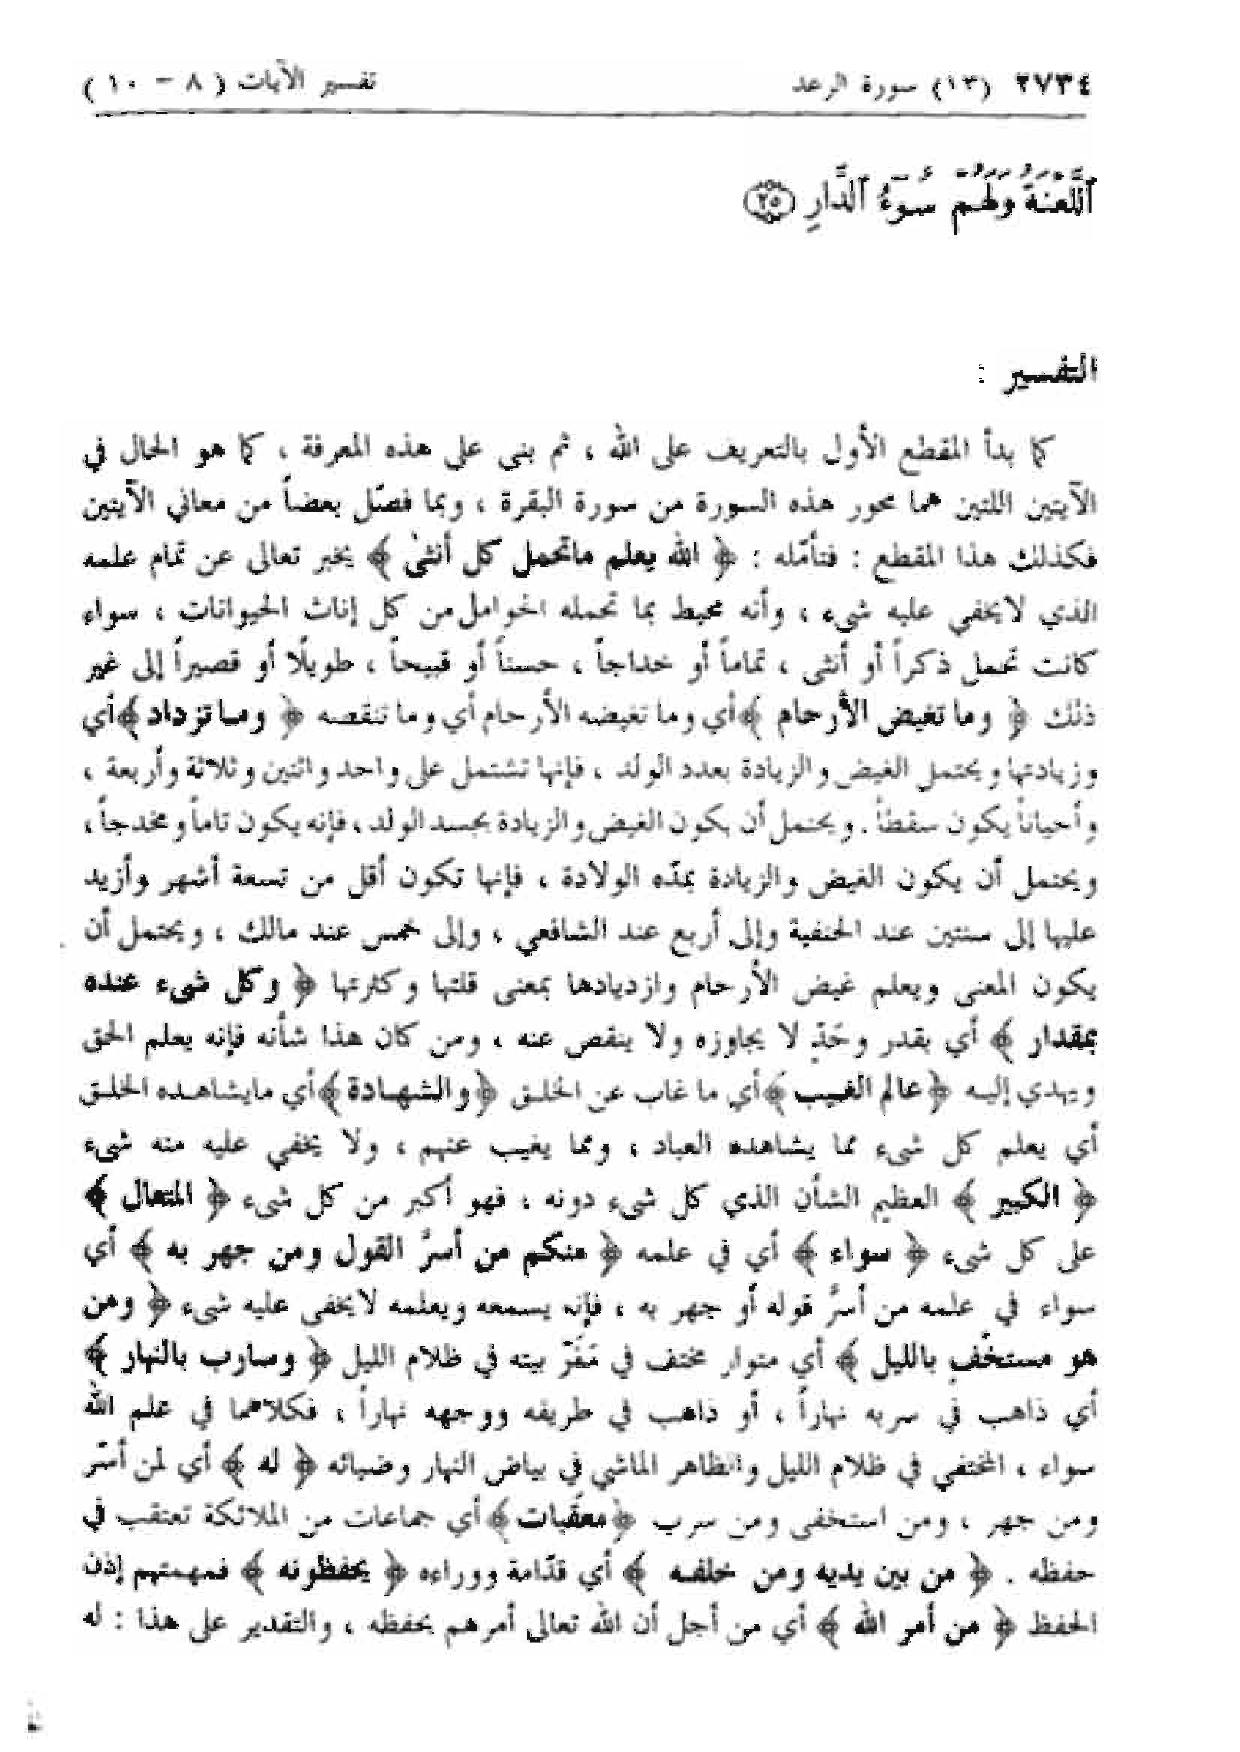 ٢٧٣٤ (١٣) سورة الرعد تفسير الآيات ( ٨ - ١٠ )
ٱللَّعۡنَةُ وَلَهُمۡ سُوٓءُ ٱلدَّارِ ٢٥
التفسير :
كما بدأ المقطع الأول بالتعريف على الله ، ثم بنى على هذه المعرفة ، كما هو الحال في
الآيتين اللتين هما محور هذه السورة من سورة البقرة ، وبما فصّل بعضاً من معاني الآيتين
فكذلك هذا المقطع : فتأمّله : ﴿ الله يعلم ماتحمل كل أنثىٰ ﴾ يخبر تعالى عن تمام علمه
الذي لايخفي عليه شيء ، وأنه محيط بما تحمله الحوامل من كل إناث الحيوانات ، سواء
كانت تحمل ذكراً أو أنثى ، تماماً أو خداجاً ، حسناً أو قبيحاً ، طويلًا أو قصيراً إلى غير
ذلك ﴿ وما تغيض الأرحام ﴾ أي وما تغيضه الأرحام أي وما تنقصه ﴿ وما تزداد ﴾ أي
وزيادتها ويحتمل الغيض والزيادة بعدد الولد ، فإنها تشتمل على واحد واثنين وثلاثة وأربعة ،
وأحياناً يكون سقطاً . ويحتمل أن يكون الغيض والزيادة بجسد الولد ، فإنه يكون تاماً ومخدجاً ،
ويحتمل أن يكون الغيض والزيادة بمدّه الولادة ، فإنها تكون أقل من تسعة أشهر وأزيد
عليها إلى سنتين عند الحنفية وإلى أربع عند الشافعي ، وإلى خمس عند مالك ، ويحتمل أن
يكون المعنى ويعلم غيض الأرحام وازديادها بمعنى قلتها وكثرتها ﴿ وكل شيء عنده
بمقدار ﴾ أي بقدر وحَدّ لا يجاوزه ولا ينقص عنه ، ومن كان هذا شأنه فإنه يعلم الحق
ويهدي إليه ﴿ عالم الغيب ﴾ أي ما غاب عن الخلق ﴿ والشهادة ﴾ أي مايشاهده الخلق
أي يعلم كل شيء مما يشاهده العباد ، ومما يغيب عنهم ، ولا يخفي عليه منه شيء
﴿ الكبير ﴾ العظيم الشأن الذي كل شيء دونه ، فهو أكبر من كل شيء ﴿ المتعال ﴾
على كل شيء ﴿ سواء ﴾ أي في علمه ﴿ منكم من أسرَّ القول ومن جهر به ﴾ أي
سواء في علمه من أسرَّ قوله أو جهر به ، فإنه يسمعه ويعلمه لايخفى عليه شيء ﴿ ومن
هو مستخْفٍ بالليل ﴾ أي متوارٍ مختف في مَقَرّ بيته في ظلام الليل ﴿ وسارب بالنهار ﴾
أي ذاهب في سربه نهاراً ، أو ذاهب في طريقه ووجهه نهاراً ، فكلاهما في علم الله
سواء ، المختفي في ظلام الليل والظاهر الماشي في بياض النهار وضيائه ﴿ له ﴾ أي لمن أسّر
ومن جهر ، ومن استخفى ومن سرب ﴿ معقّبات ﴾ أي جماعات من الملائكة تعتقب في
حفظه . ﴿ من بين يديه ومن خلفه ﴾ أي قدّامة ووراءه ﴿ يحفظونه ﴾ فمهمتهم إذن
الحفظ ﴿ من أمر الله ﴾ أي من أجل أن الله تعالى أمرهم بحفظه ، والتقدير على هذا : له